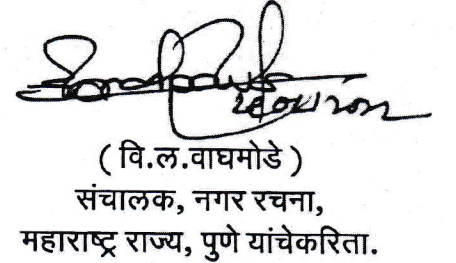 ( वि.ल.वाघमोडे )
संचालक, नगर रचना,
महाराष्ट्र राज्य, पुणे यांचेकरिता.